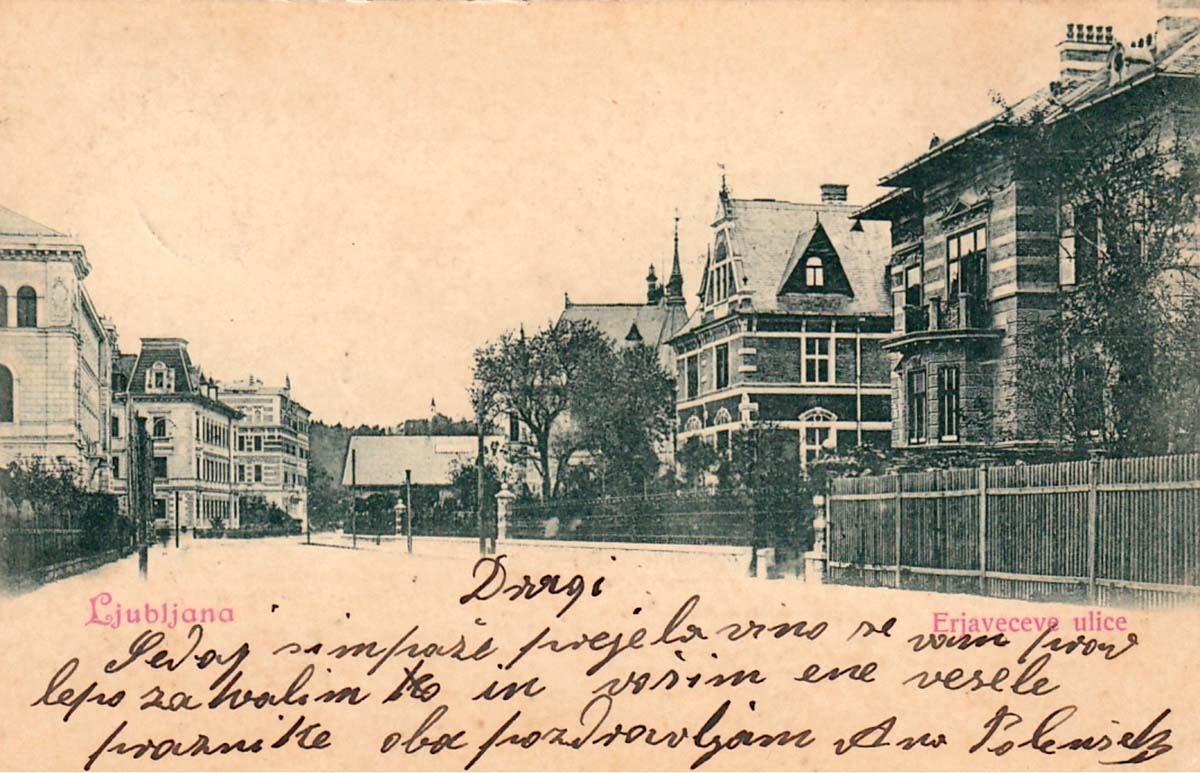 Ljubljana
Erjaveceve ulice
Dragi
Sedaj sim paže prejela vino se vam prav
lepo zahvalim ko in vošim ene vesele
praznike oba pozdravljam Ana